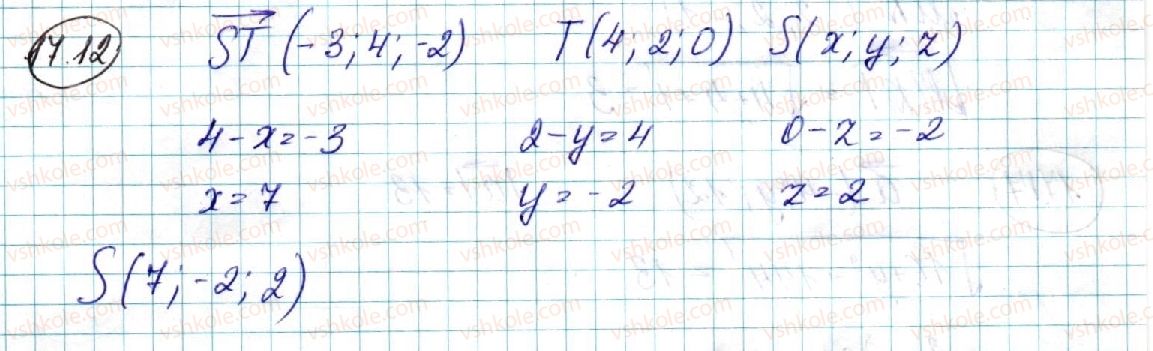 17.12 $\overrightarrow{ST}$ (-3; 4; -2) T(4; 2; 0) S(x; y; z)
4-x=-3 2-y=4 0-z=-2
x=7 y=-2 z=2
S(7; -2; 2)